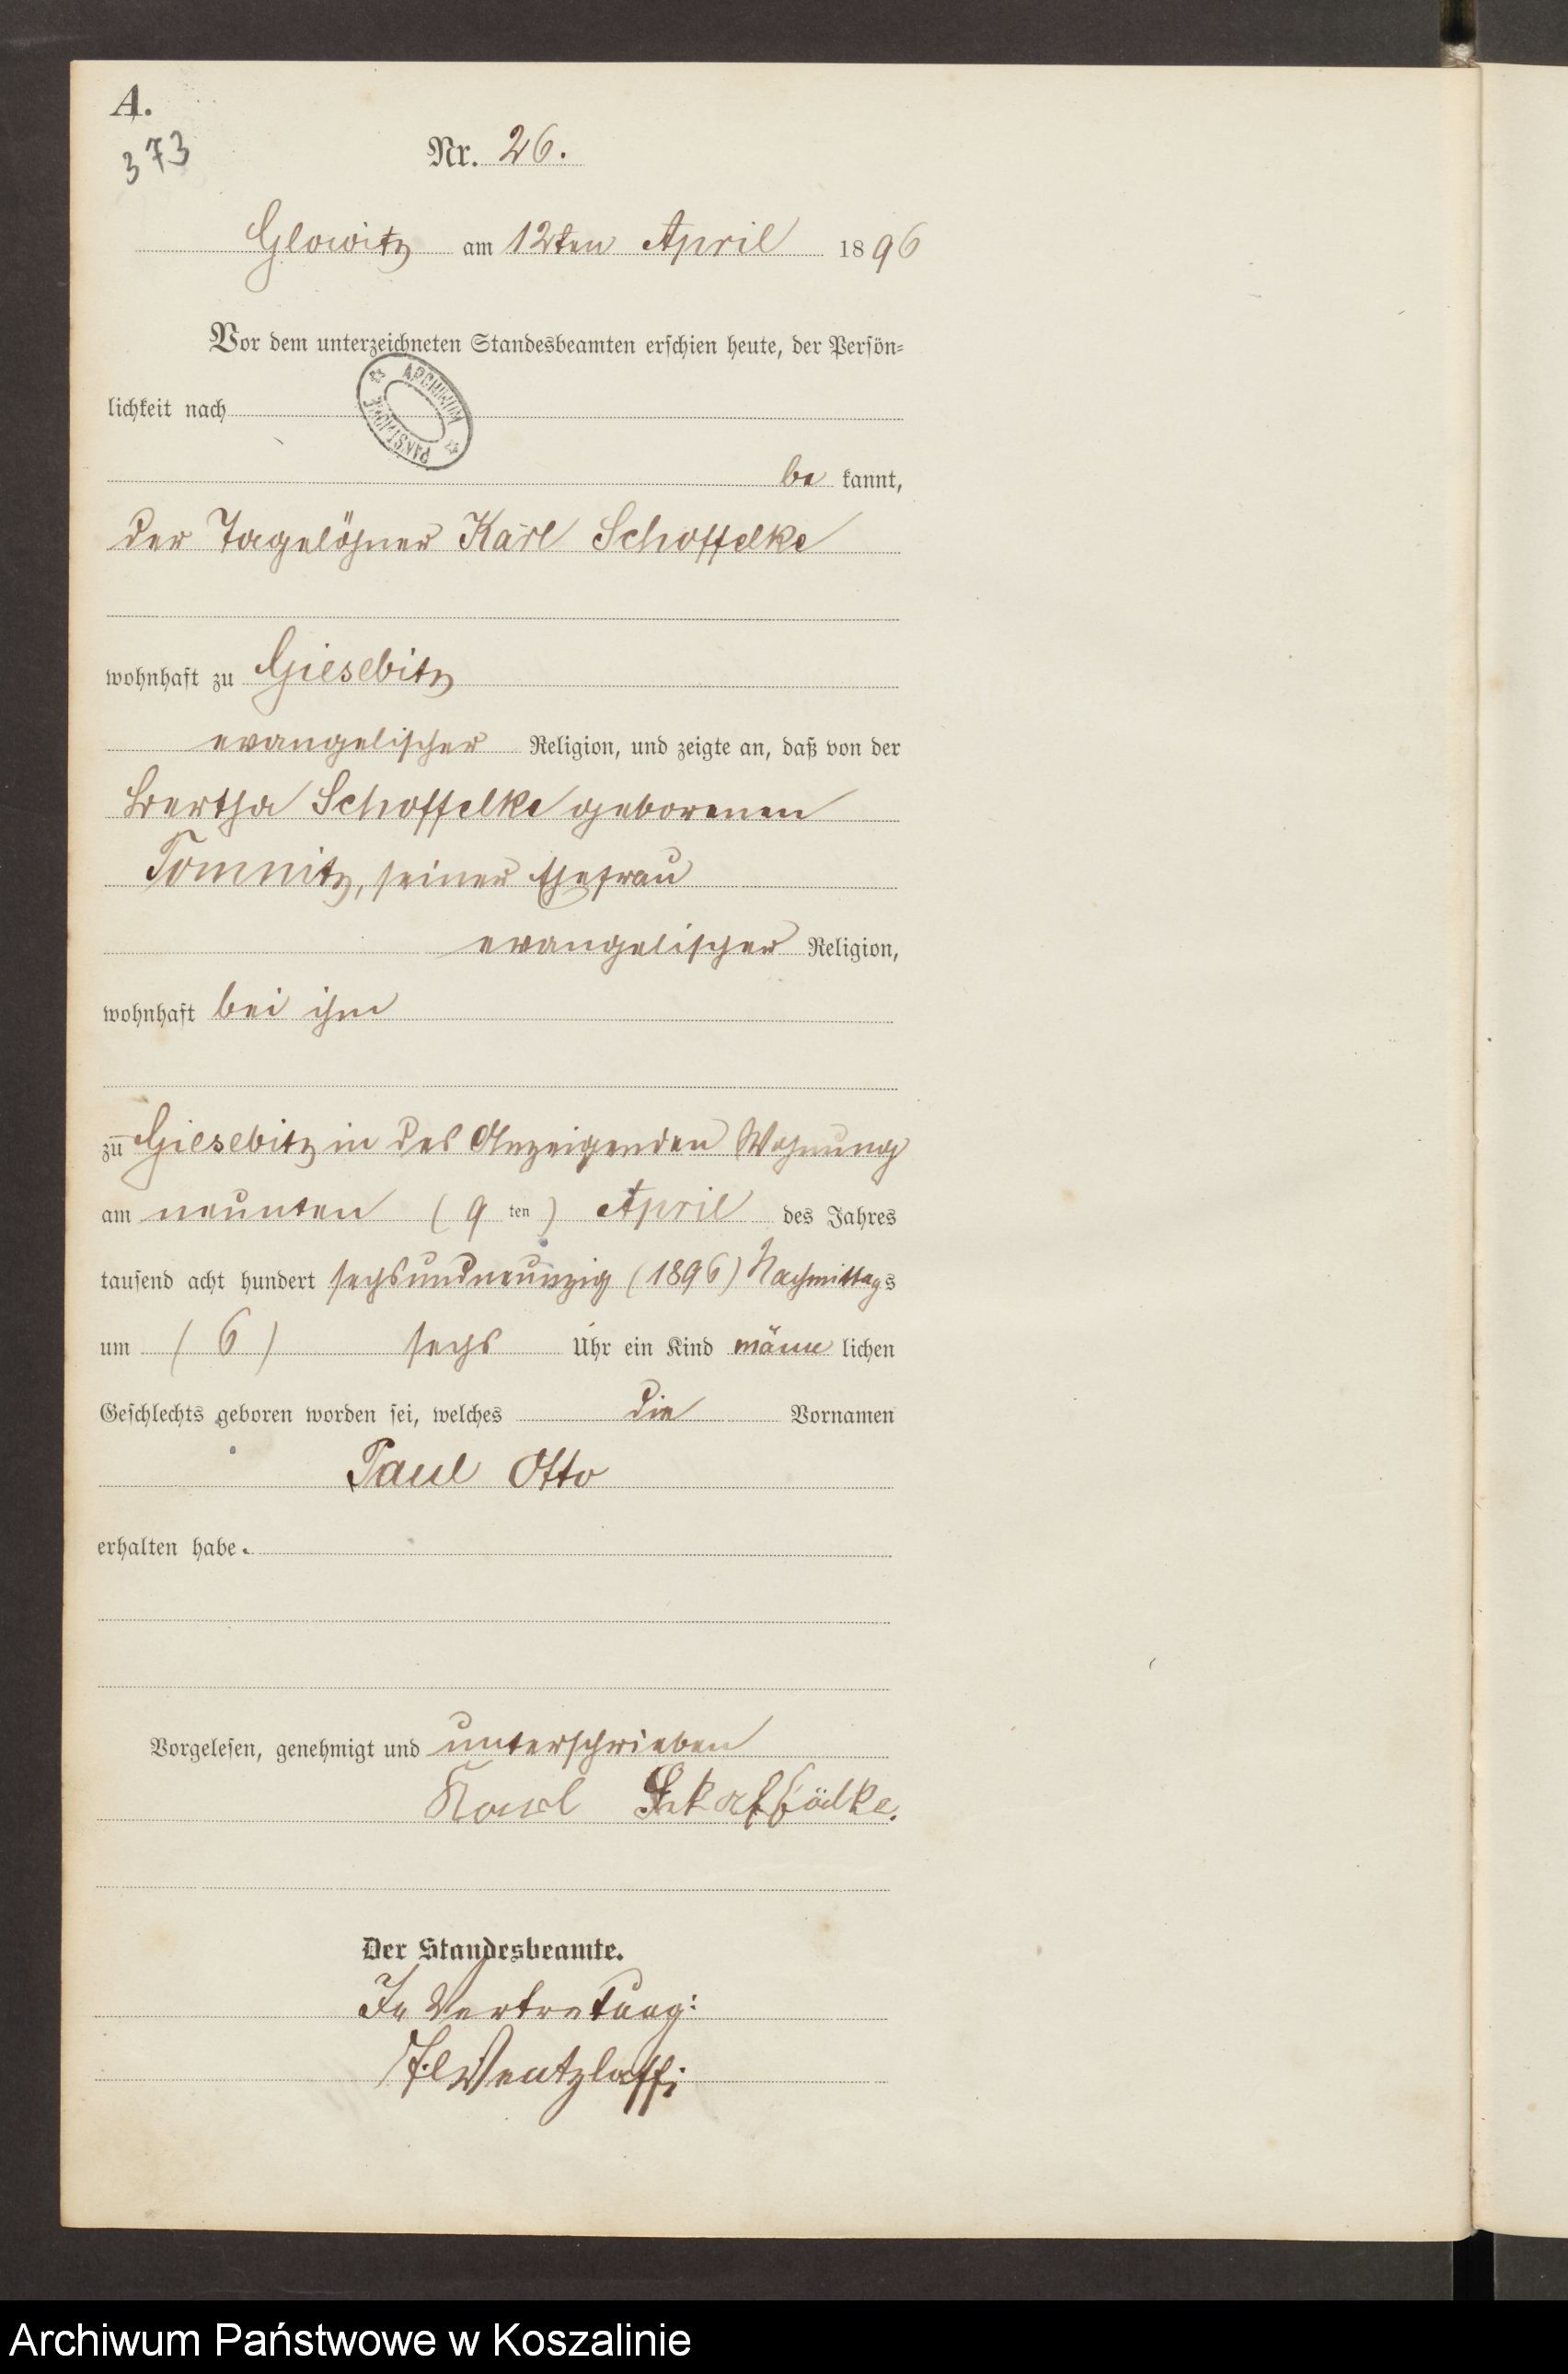 A.
373
Nr. 26.
Glowitz am 12ten April 1896
Vor dem unterzeichneten Standesbeamten erschien heute, der Persön=
lichkeit nach
ARCHIWUM PAŃSTWOWE
be kannt,
der Tagelöhner Karl Schoffelke
wohnhaft zu Giesebitz
evangelischer Religion, und zeigte an, daß von der
Bertha Schoffelke geborenen
Tomnitz, seiner Ehefrau
evangelischer Religion,
wohnhaft bei ihm
zu Giesebitz in des Anzeigenden Wohnung
am neunten (9 ten) April des Jahres
tausend acht hundert sechsundneunzig (1896) Nachmittags
um (6) sechs Uhr ein Kind männ lichen
Geschlechts geboren worden sei, welches die Vornamen
Paul Otto
erhalten habe.
Vorgelesen, genehmigt und unterschrieben
Karl
Der Standesbeamte.
In Vertretung:
Wentzlaff
Archiwum Państwowe w Koszalinie